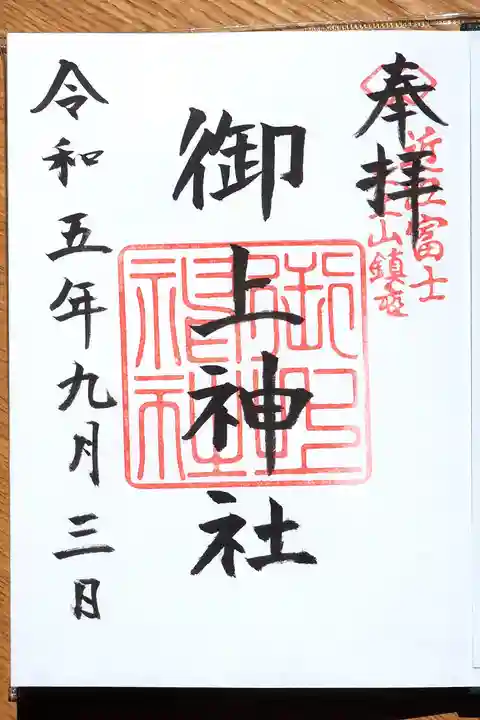 奉拝
近江富士
山鎮座
御上神社
令和五年九月三日